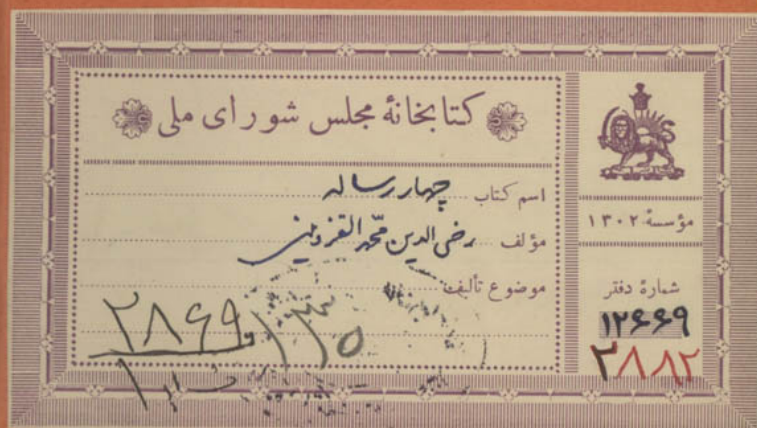 کتابخانهٔ مجلس شورای ملی
اسم کتاب چهار رساله
مؤلف رضی الدین محمد القزوینی
موضوع تألیف
مؤسسهٔ ۱۳۰۲
شمارهٔ دفتر
۱۲۶۶۹
۲۸۸۲
۲۸۶۹